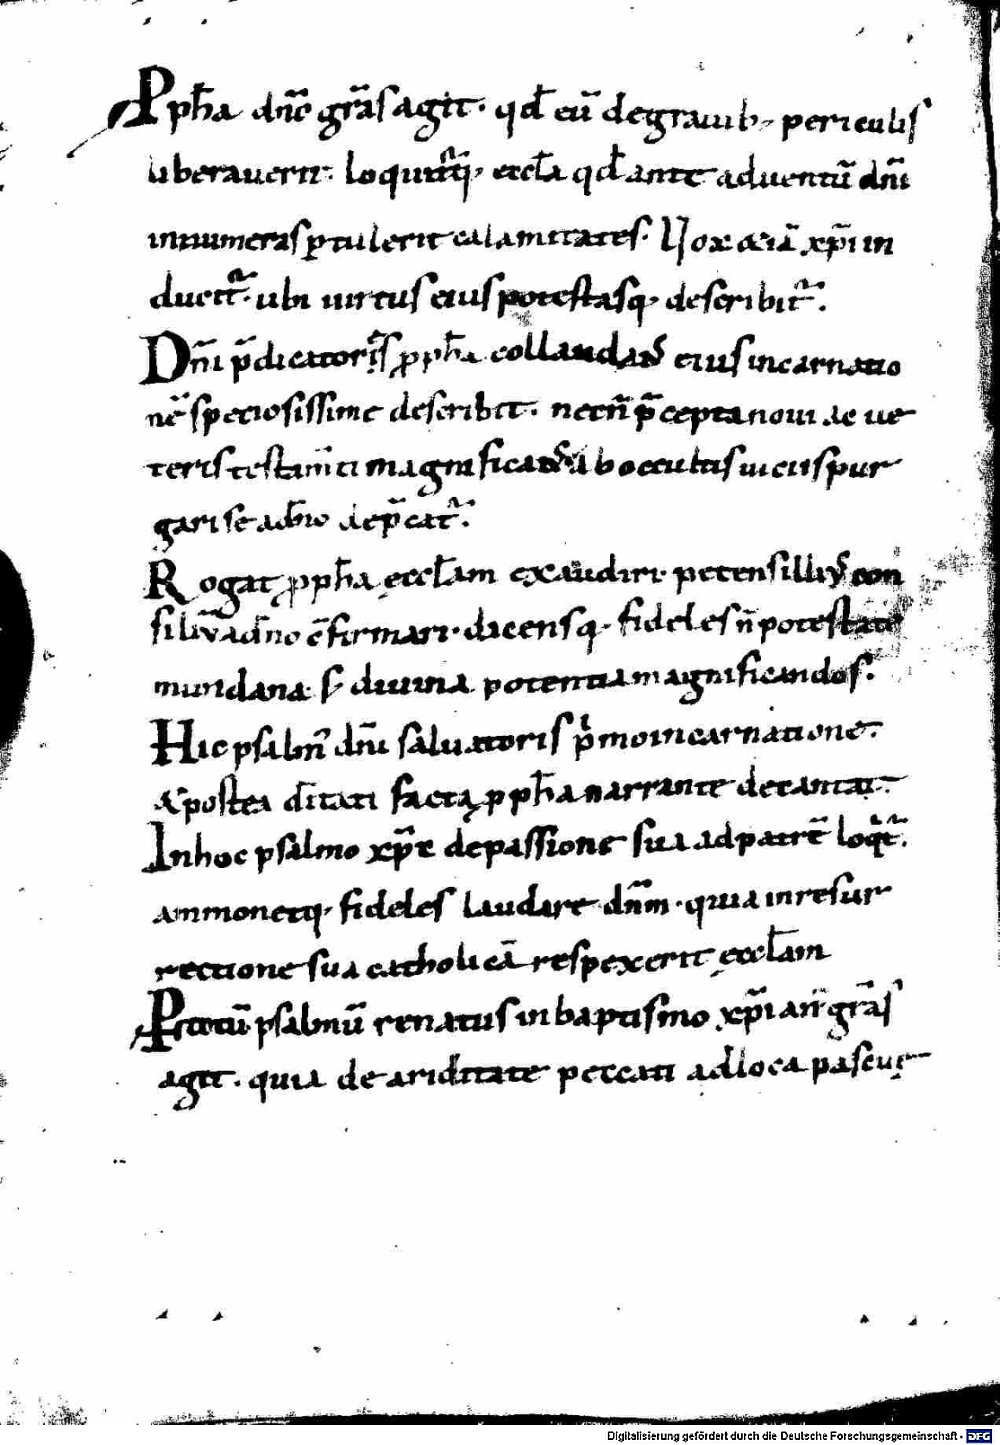 Pph̄a dn̄o gr̄as agit· qd̄ eū degrauib; periculis
liberauerit· loquit̄q; eccl̄a qd̄ ante aduentū dn̄i
innumeras ꝑtulerit calamitates· Uox &iā xp̄i in
ducit̄· ubi uirtus eius potestasq; describit̄·
Dn̄i p̄dicatoris ꝓph̄a collaudans eius incarnatio
nē speciosissime describit· necn̄ p̄cepta noui ac ue
teris testam̄ti magnificans ab occultis uiciis pur
gari se a dn̄o dep̄cat̄·
Rogat ꝓph̄a ęccl̄am exaudiri· petens illius con
siliū a dn̄o c̄firmari· dicensq; fideles n̄ potestate
mundana s; diuina potentia magnificandos·
Hic psalm̄ dn̄i saluatoris p̄mo incarnatione·
& postea d̄itati facta ꝓph̄a narrante decantat·
In hoc psalmo xp̄c de passione sua ad patrē loq̄t̄·
ammonetq; fideles laudare dn̄m· quia in resur
rectione sua catholicā respexerit ęccl̄am
P totū psalmū renatus in baptismo xp̄ian̄ gr̄as
agit· quia de ariditate peccati ad loca pascuę
Digitalisierung gefördert durch die Deutsche Forschungsgemeinschaft - DFG